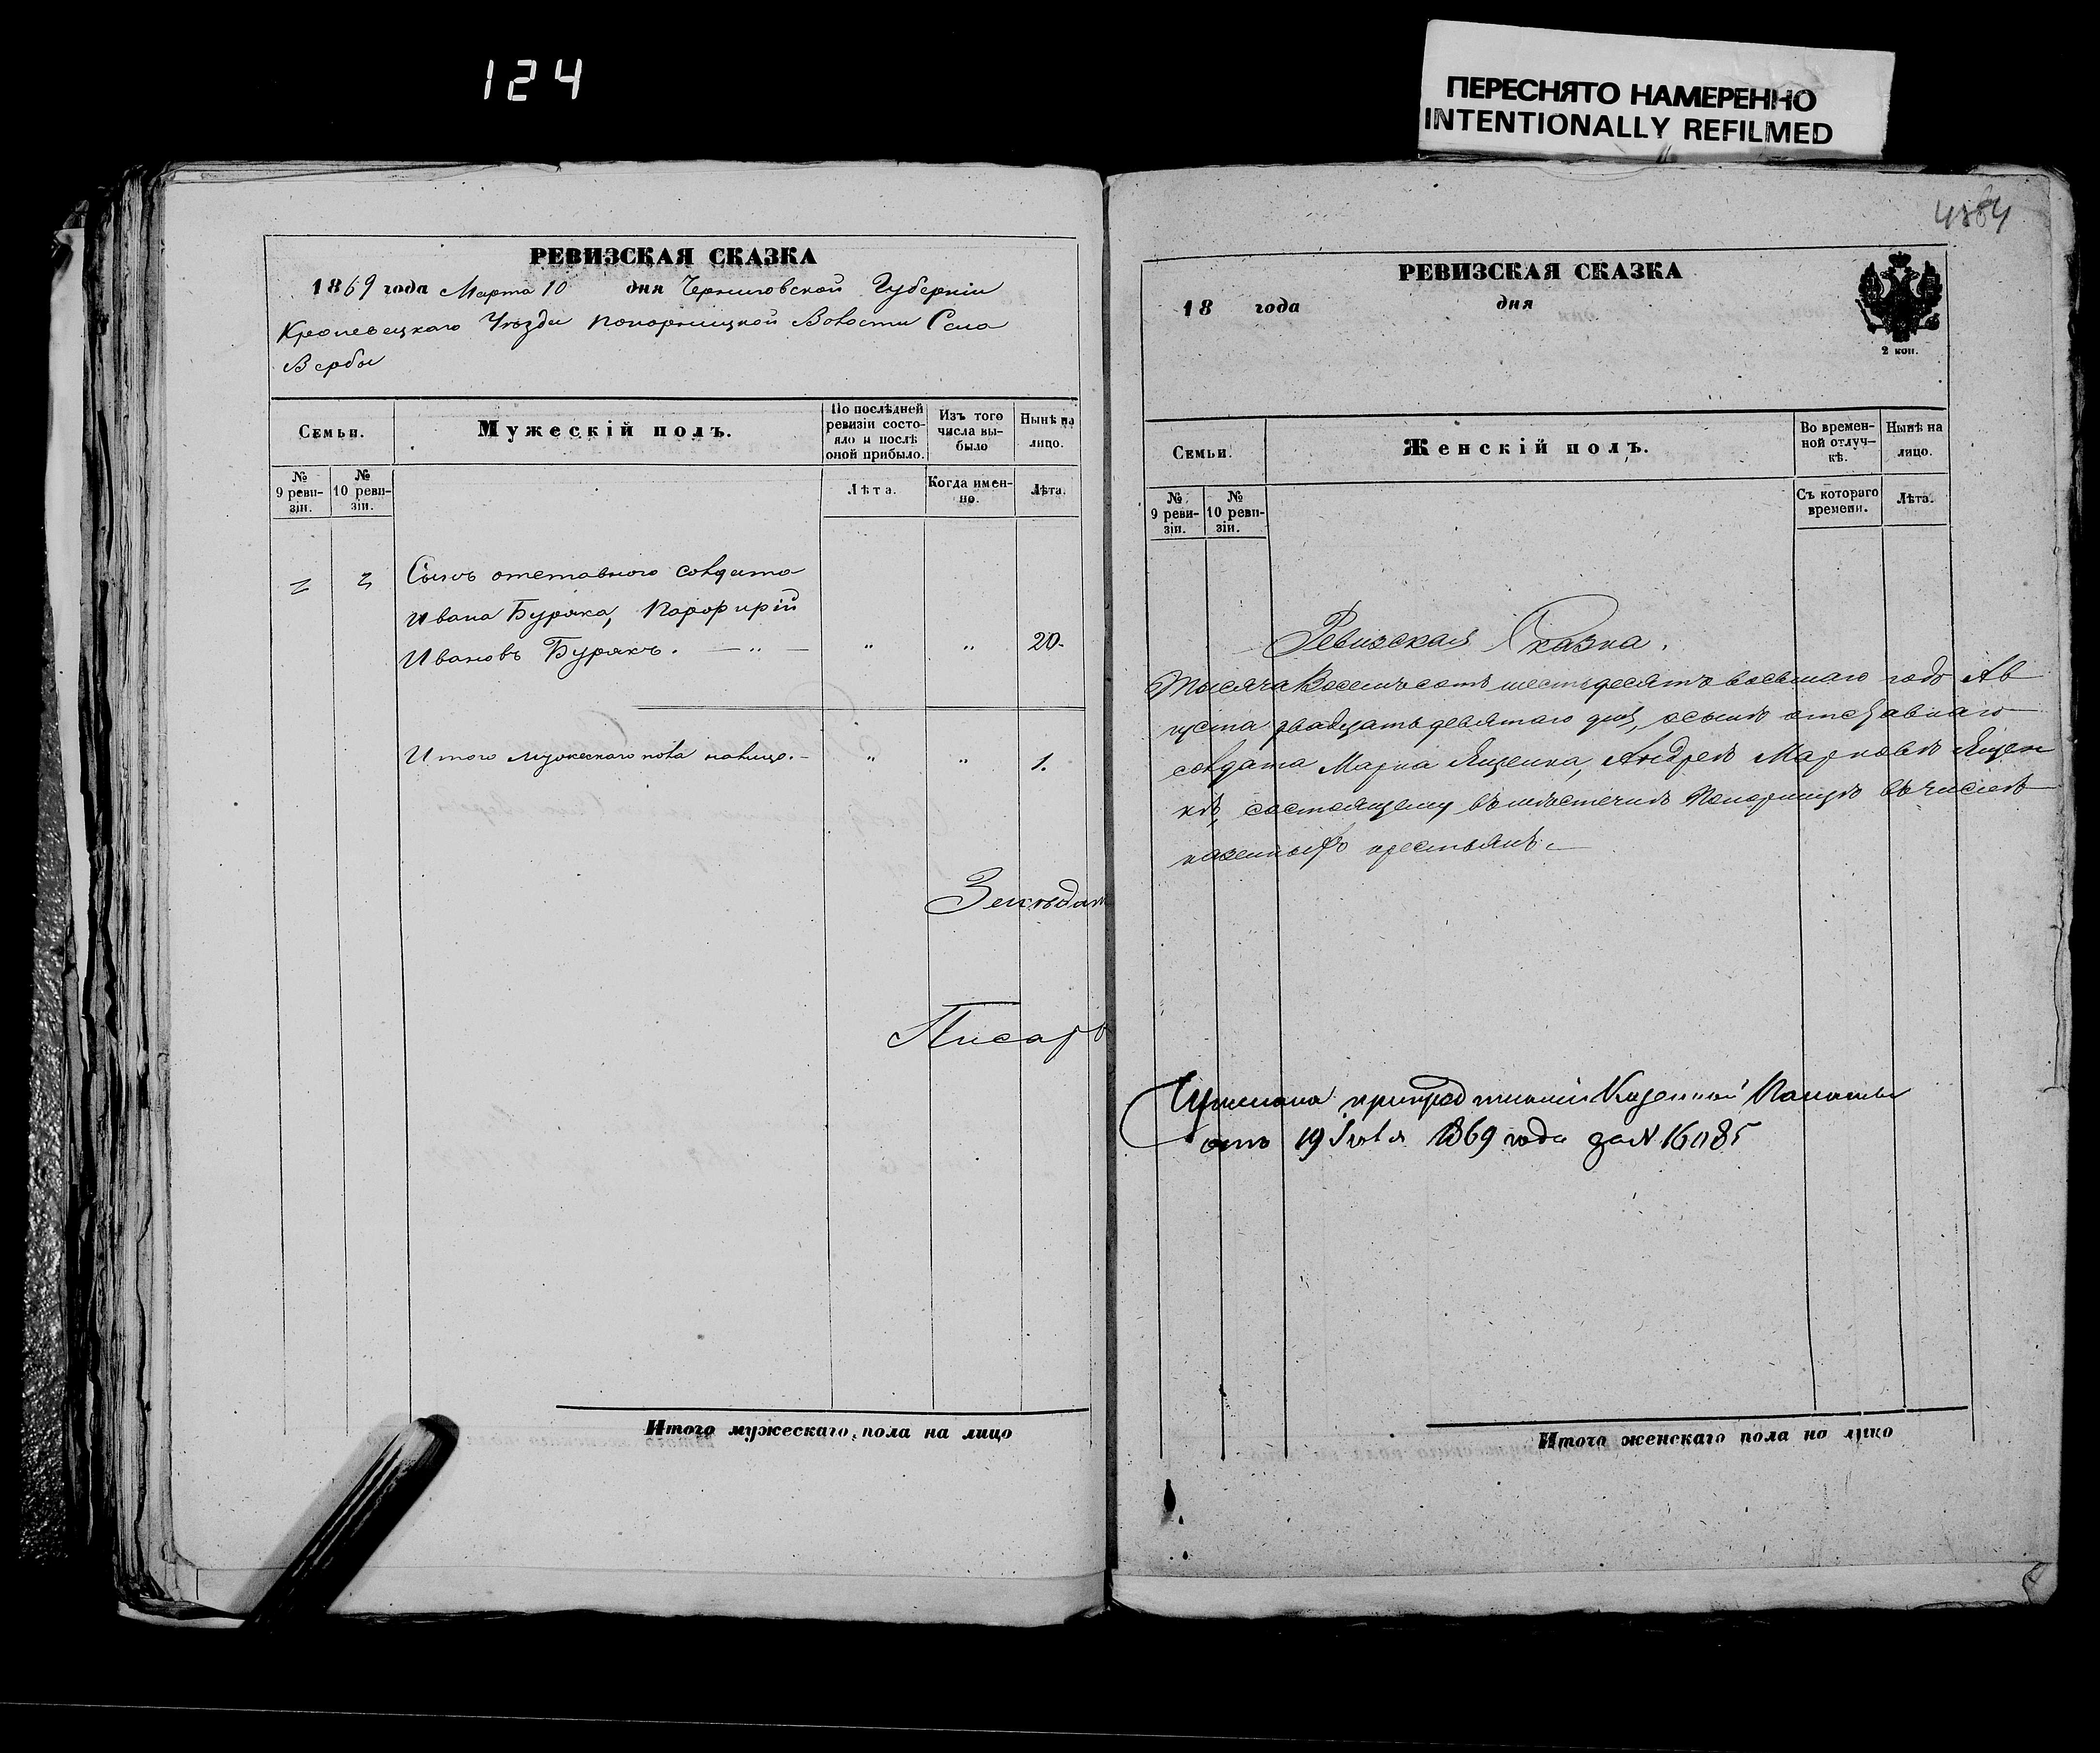 124
ПЕРЕСНЯТО НАМЕРЕННО
INTENTIONALLY REFILMED
РЕВИЗСКАЯ СКАЗКА
1869 года Марта 10 дня Черниговской Губерніи
Кролевецкаго Уѣзда Понорницкой Волости Села
Вербы
Семьи.
Мужескій полъ.
По послѣдней ревизіи состояло и послѣ оной прибыло.
Изъ того числа выбыло
Нынѣ на лицо.
№ 9 ревизіи.
№ 10 ревизіи.
Лѣта.
Когда именно.
Лѣта.
Сынъ отставного солдата
Ивана Буряка, Порфирій
Ивановъ Бурякъ. — „ — „ „ 20.
Итого мужескаго пола налицо. - „ „ 1.
Писарь
Итого мужескаго пола на лицо
РЕВИЗСКАЯ СКАЗКА
18 года дня
2 коп.
Семьи.
Женскій полъ.
Во временной отлучкѣ.
Нынѣ на лицо.
№ 9 ревизіи.
№ 10 ревизіи.
Съ котораго времени.
Лѣта.
Ревизская Сказка.
Тысяча Восемьсотъ шестьдесятъ восьмаго года Ав
густа двадцать девятаго дня, осынѣ отставнаго
солдата Марка Ященка, Андреѣ Марковѣ Ящен
кѣ, состоящему въ мѣстечкѣ Понорницѣ въ числѣ
казенныхъ крестьянъ. —
Казенной Палаты
отъ 19 Іюля 1869 года за №
Итого женскаго пола на лицо